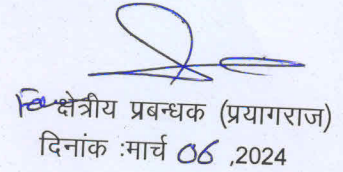 For क्षेत्रीय प्रबन्धक (प्रयागराज)
दिनांक :मार्च 06 ,2024